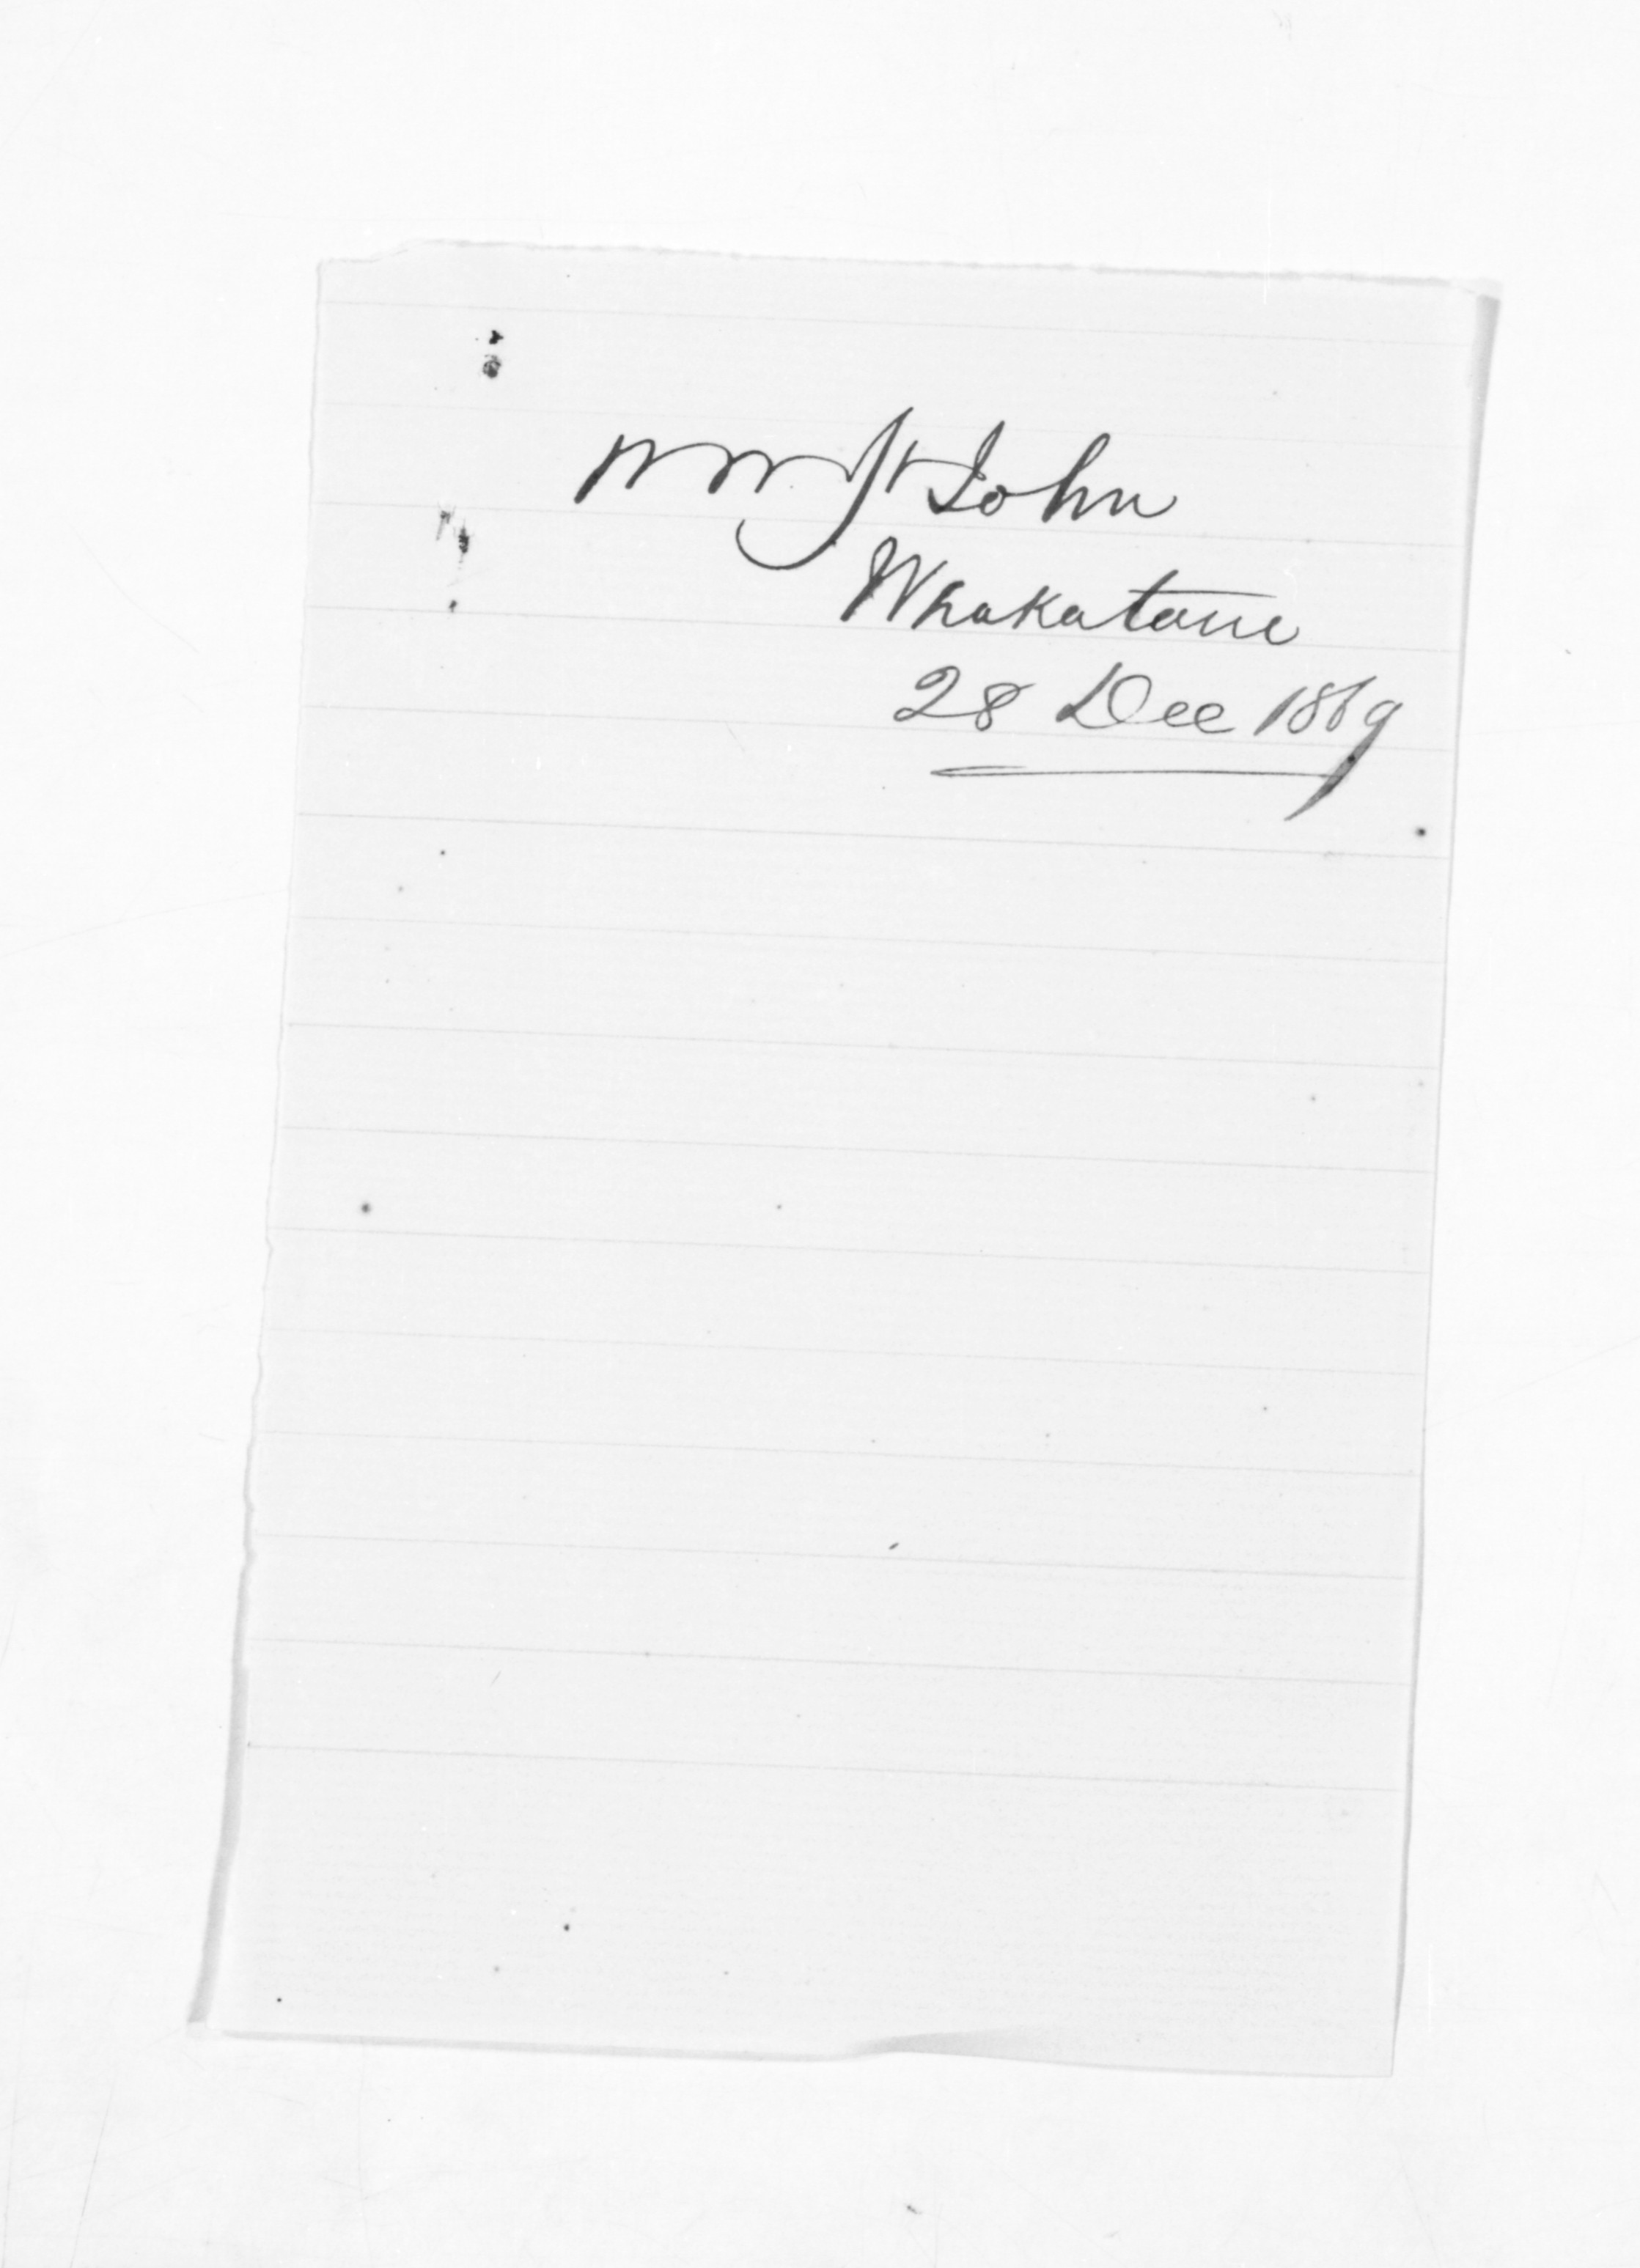 St John
Whakatane
28 Dec 1869